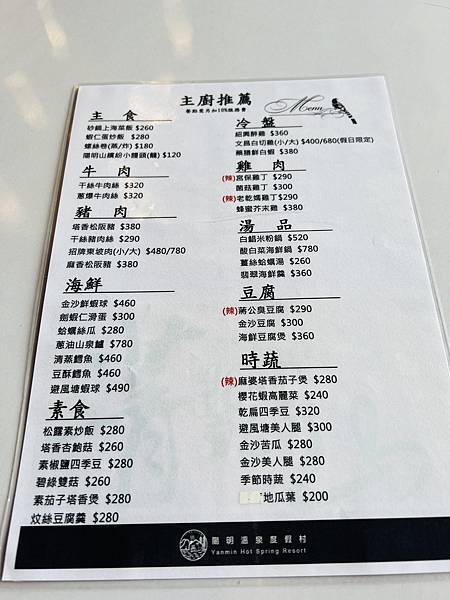 主廚推薦
餐點需另加10%服務費
Menu
主食
砂鍋上海菜飯 $260
蝦仁蛋炒飯 $280
螺絲卷(蒸/炸) $180
陽明山繽紛小饅頭(麵) $120
牛肉
干絲牛肉絲 $320
蔥爆牛肉絲 $320
豬肉
塔香松阪豬 $380
干絲豬肉絲 $290
招牌東坡肉(小/大) $480/780
麻香松阪豬 $380
海鮮
金沙鮮蝦球 $460
劍蝦仁滑蛋 $300
蛤蠣絲瓜 $280
蔥油山泉鱸 $780
清蒸鱈魚 $460
豆酥鱈魚 $460
避風塘蝦球 $490
素食
松露素炒飯 $280
塔香杏鮑菇 $260
素椒鹽四季豆 $280
碧綠雙菇 $260
素茄子塔香煲 $280
炆絲豆腐羹 $280
冷盤
紹興醉雞 $360
文昌白切雞(小/大) $400/680(假日限定)
藥膳鮮白蝦 $380
雞肉
(辣)宮保雞丁 $290
菌菇雞丁 $300
(辣)老乾媽雞丁$290
蜂蜜芥末雞 $380
湯品
白鯧米粉鍋 $520
酸白菜海鮮鍋 $780
薑絲蛤蠣湯 $260
翡翠海鮮羹 $360
豆腐
(辣)蔣公臭豆腐 $290
金沙豆腐 $300
海鮮豆腐煲 $360
時蔬
(辣)麻婆塔香茄子煲 $280
櫻花蝦高麗菜 $240
乾扁四季豆 $320
避風塘美人腿 $300
金沙苦瓜 $280
金沙美人腿 $280
季節時蔬 $240
地瓜葉 $200
陽明溫泉度假村
Yanmin Hot Spring Resort